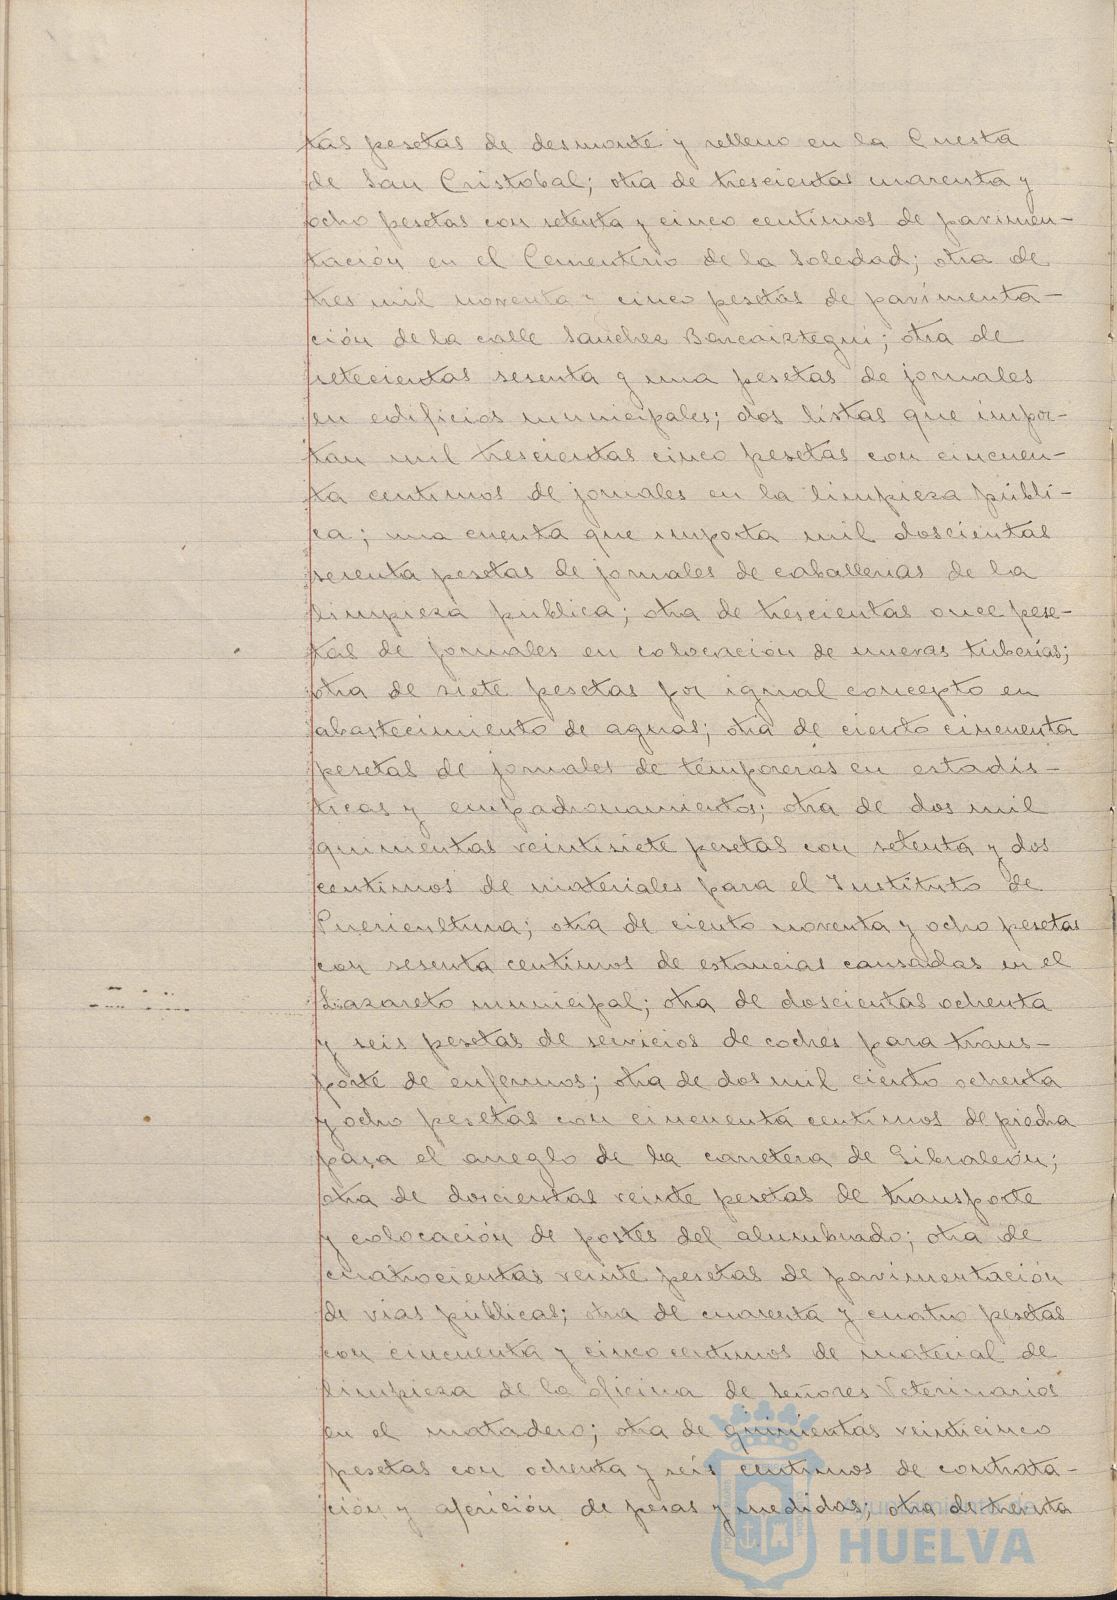 tas pesetas de desmonte y relleno en la Cuesta
de San Cristobal; otra de trescientas cuarenta y
ocho pesetas con setenta y cinco centimos de pavimen-
tación en el Cementerio de la Soledad; otra de
tres mil noventa y cinco pesetas de pavimenta-
ción de la calle Sanchez Barcaiztegui; otra de
setecientas sesenta y una pesetas de jornales
en edificios municipales; dos listas que impor-
tan mil trescientas cinco pesetas con cincuen-
ta centimos de jornales en la limpieza públi-
ca; una cuenta que importa mil doscientas
pesetas de jornales de caballerias de la
limpieza pública; otra de trescientas once pese-
tas de jornales en colocación de nuevas tuberías;
otra de siete pesetas por igual concepto en
abastecimiento de aguas; otra de ciento cincuenta
pesetas de jornales de temporeros en estadis-
ticas y empadronamientos; otra de dos mil
quinientas veintisiete pesetas con setenta y dos
centimos de materiales para el Instituto de
Puericultura; otra de ciento noventa y ocho pesetas
con sesenta centimos de estancias causadas en el
Lazareto municipal; otra de doscientas ochenta
y seis pesetas de servicios de coches para trans-
porte de enfermos; otra de dos mil ciento ochenta
y ocho pesetas con cincuenta centimos de piedra
para el arreglo de la carretera de Gibraleón;
otra de doscientas veinte pesetas de transporte
y colocación de postes del alumbrado; otra de
cuatrocientas veinte pesetas de pavimentación
de vias públicas; otra de cuarenta y cuatro pesetas
con cincuenta y cinco centimos de material de
limpieza de la oficina de Señores Veterinarios
en el matadero; otra de quinientas veinticinco
pesetas con ochenta y seis centimos de contrata-
ción y aferición de pesas y medidas; otra de treinta
Ayuntamiento de
HUELVA